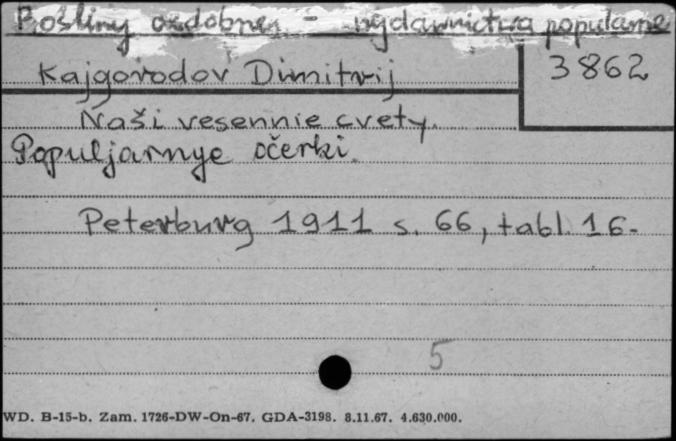 Rośliny ozdobne - wydawnictwa popularne
Kajgorodov Dimitrij
3862
Naši vesennie cvety.
Populjarnye očerki.
Peterburg 1911 s. 66, tabl. 16.
5
WD. B-15-b. Zam. 1726-DW-On-67. GDA-3198. 8.11.67. 4.630.000.